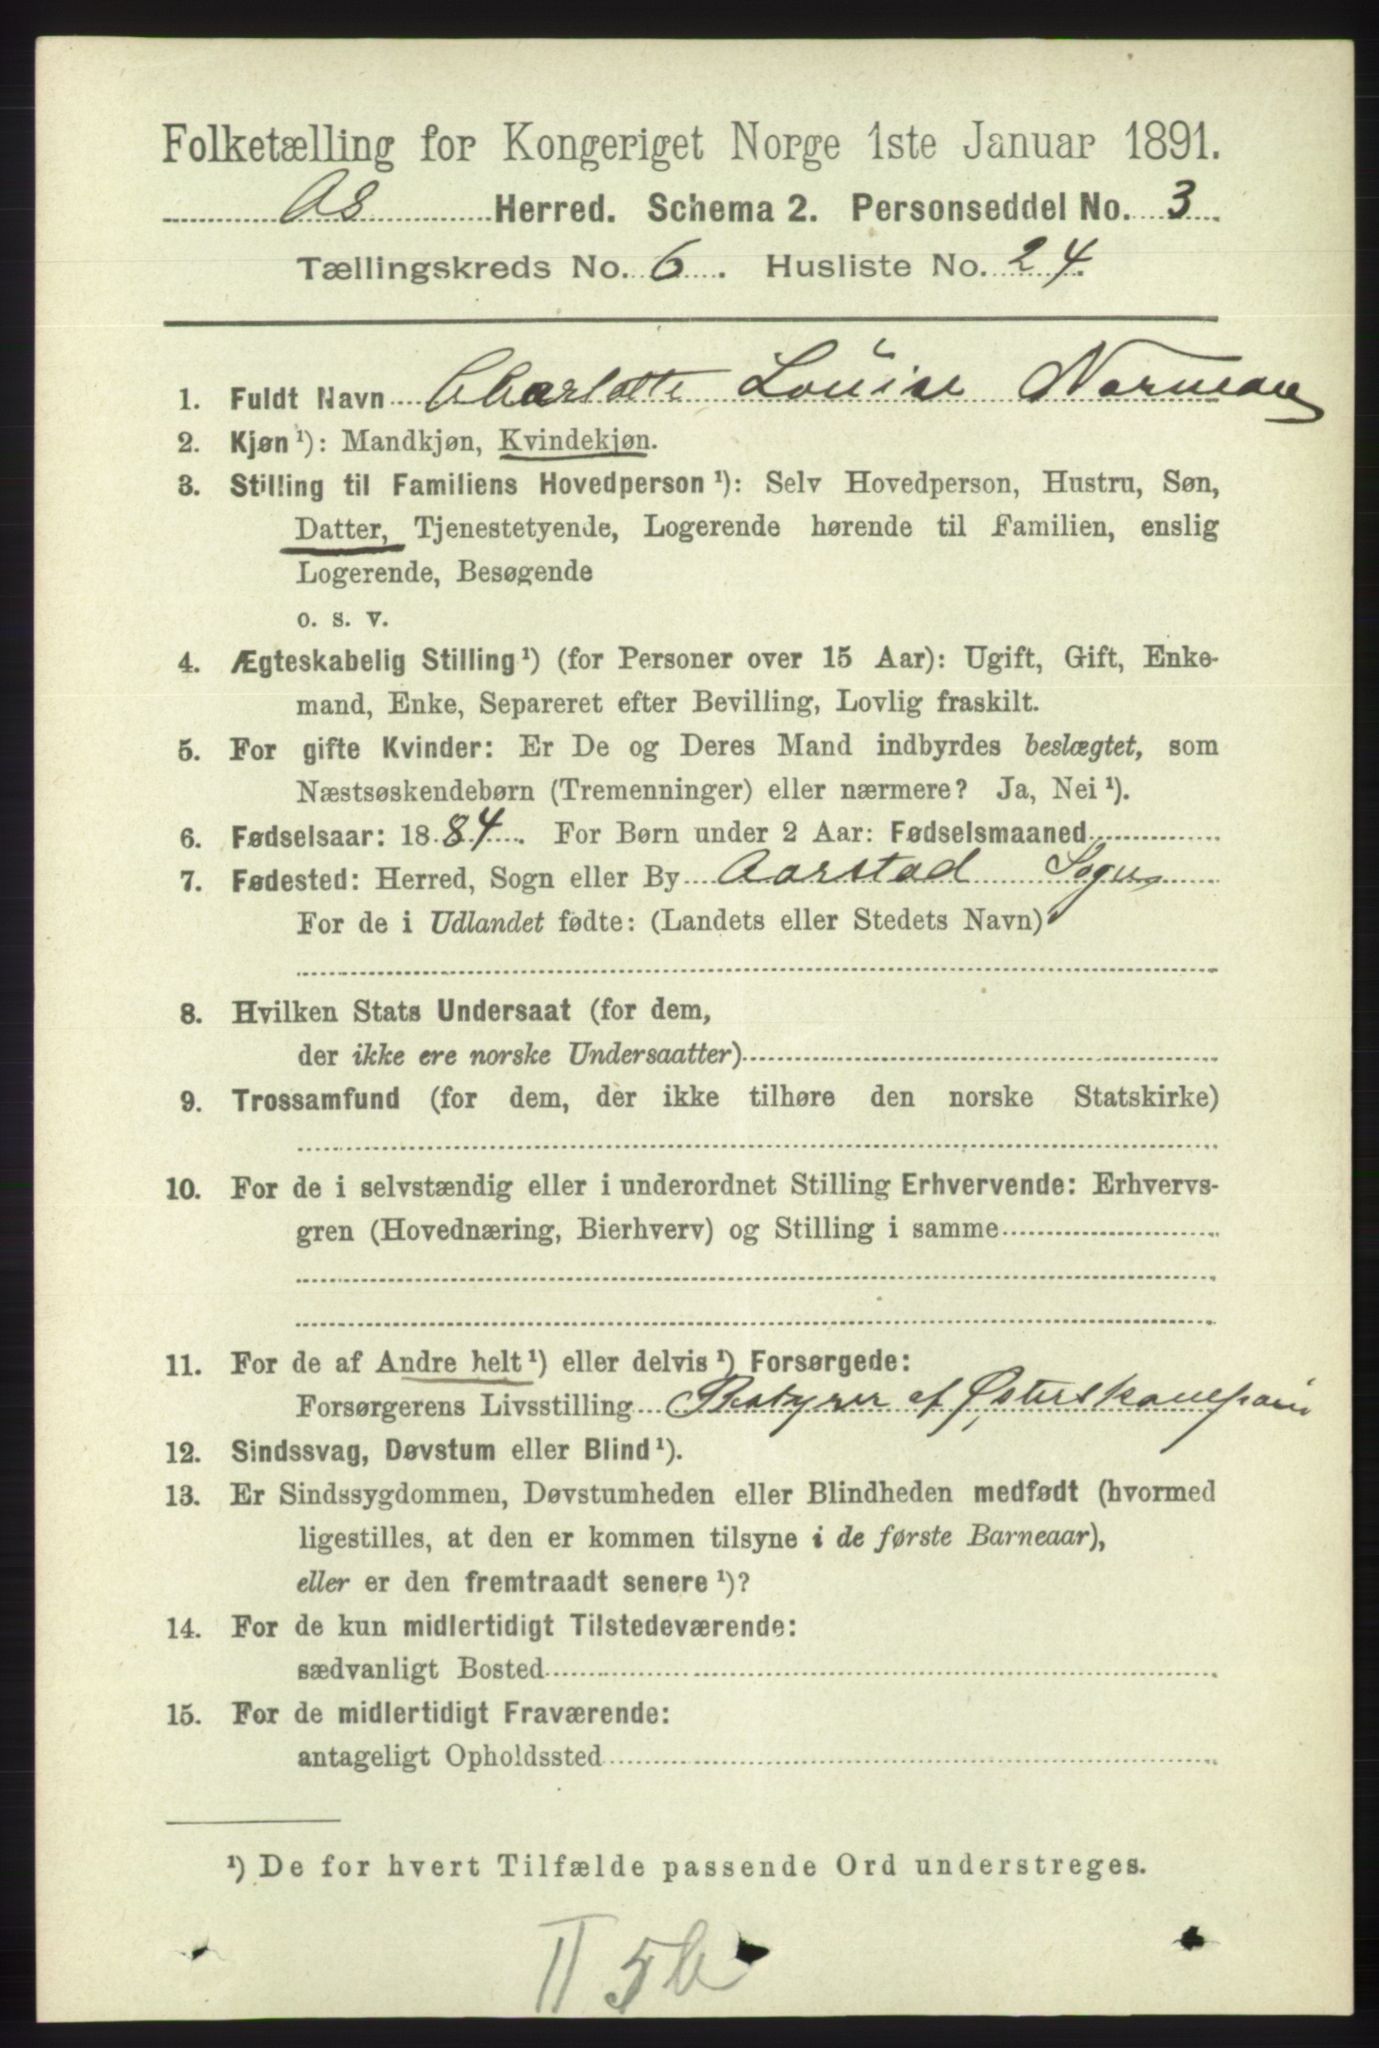 Folketælling for Kongeriget Norge 1ste Januar 1891.
Os Herred. Schema 2. Personseddel No. 3
Tællingskreds No. 6. Husliste No. 24.
1. Fuldt Navn Charlotte Louise Norman
2. Kjøn ¹): Mandkjøn, Kvindekjøn.
3. Stilling til Familiens Hovedperson ¹): Selv Hovedperson, Hustru, Søn,
Datter, Tjenestetyende, Logerende hørende til Familien, enslig
Logerende, Besøgende
o. s. v.
4. Ægteskabelig Stilling ¹) (for Personer over 15 Aar): Ugift, Gift, Enke-
mand, Enke, Separeret efter Bevilling, Lovlig fraskilt.
5. For gifte Kvinder: Er De og Deres Mand indbyrdes beslægtet, som
Næstsøskendebørn (Tremenninger) eller nærmere? Ja, Nei ¹).
6. Fødselsaar: 1884. For Børn under 2 Aar: Fødselsmaaned
7. Fødested: Herred, Sogn eller By Aarstad Sogn
For de i Udlandet fødte: (Landets eller Stedets Navn)
8. Hvilken Stats Undersaat (for dem,
der ikke ere norske Undersaatter)
9. Trossamfund (for dem, der ikke tilhøre den norske Statskirke)
10. For de i selvstændig eller i underordnet Stilling Erhvervende: Erhvervs-
gren (Hovednæring, Bierhverv) og Stilling i samme
11. For de af Andre helt ¹) eller delvis ¹) Forsørgede:
Forsørgerens Livsstilling Bestyrer af Østerskompani
12. Sindssvag, Døvstum eller Blind ¹).
13. Er Sindssygdommen, Døvstumheden eller Blindheden medfødt (hvormed
ligestilles, at den er kommen tilsyne i de første Barneaar),
eller er den fremtraadt senere ¹)?
14. For de kun midlertidigt Tilstedeværende:
sædvanligt Bosted
15. For de midlertidigt Fraværende:
antageligt Opholdssted
¹) De for hvert Tilfælde passende Ord understreges.
II 5b